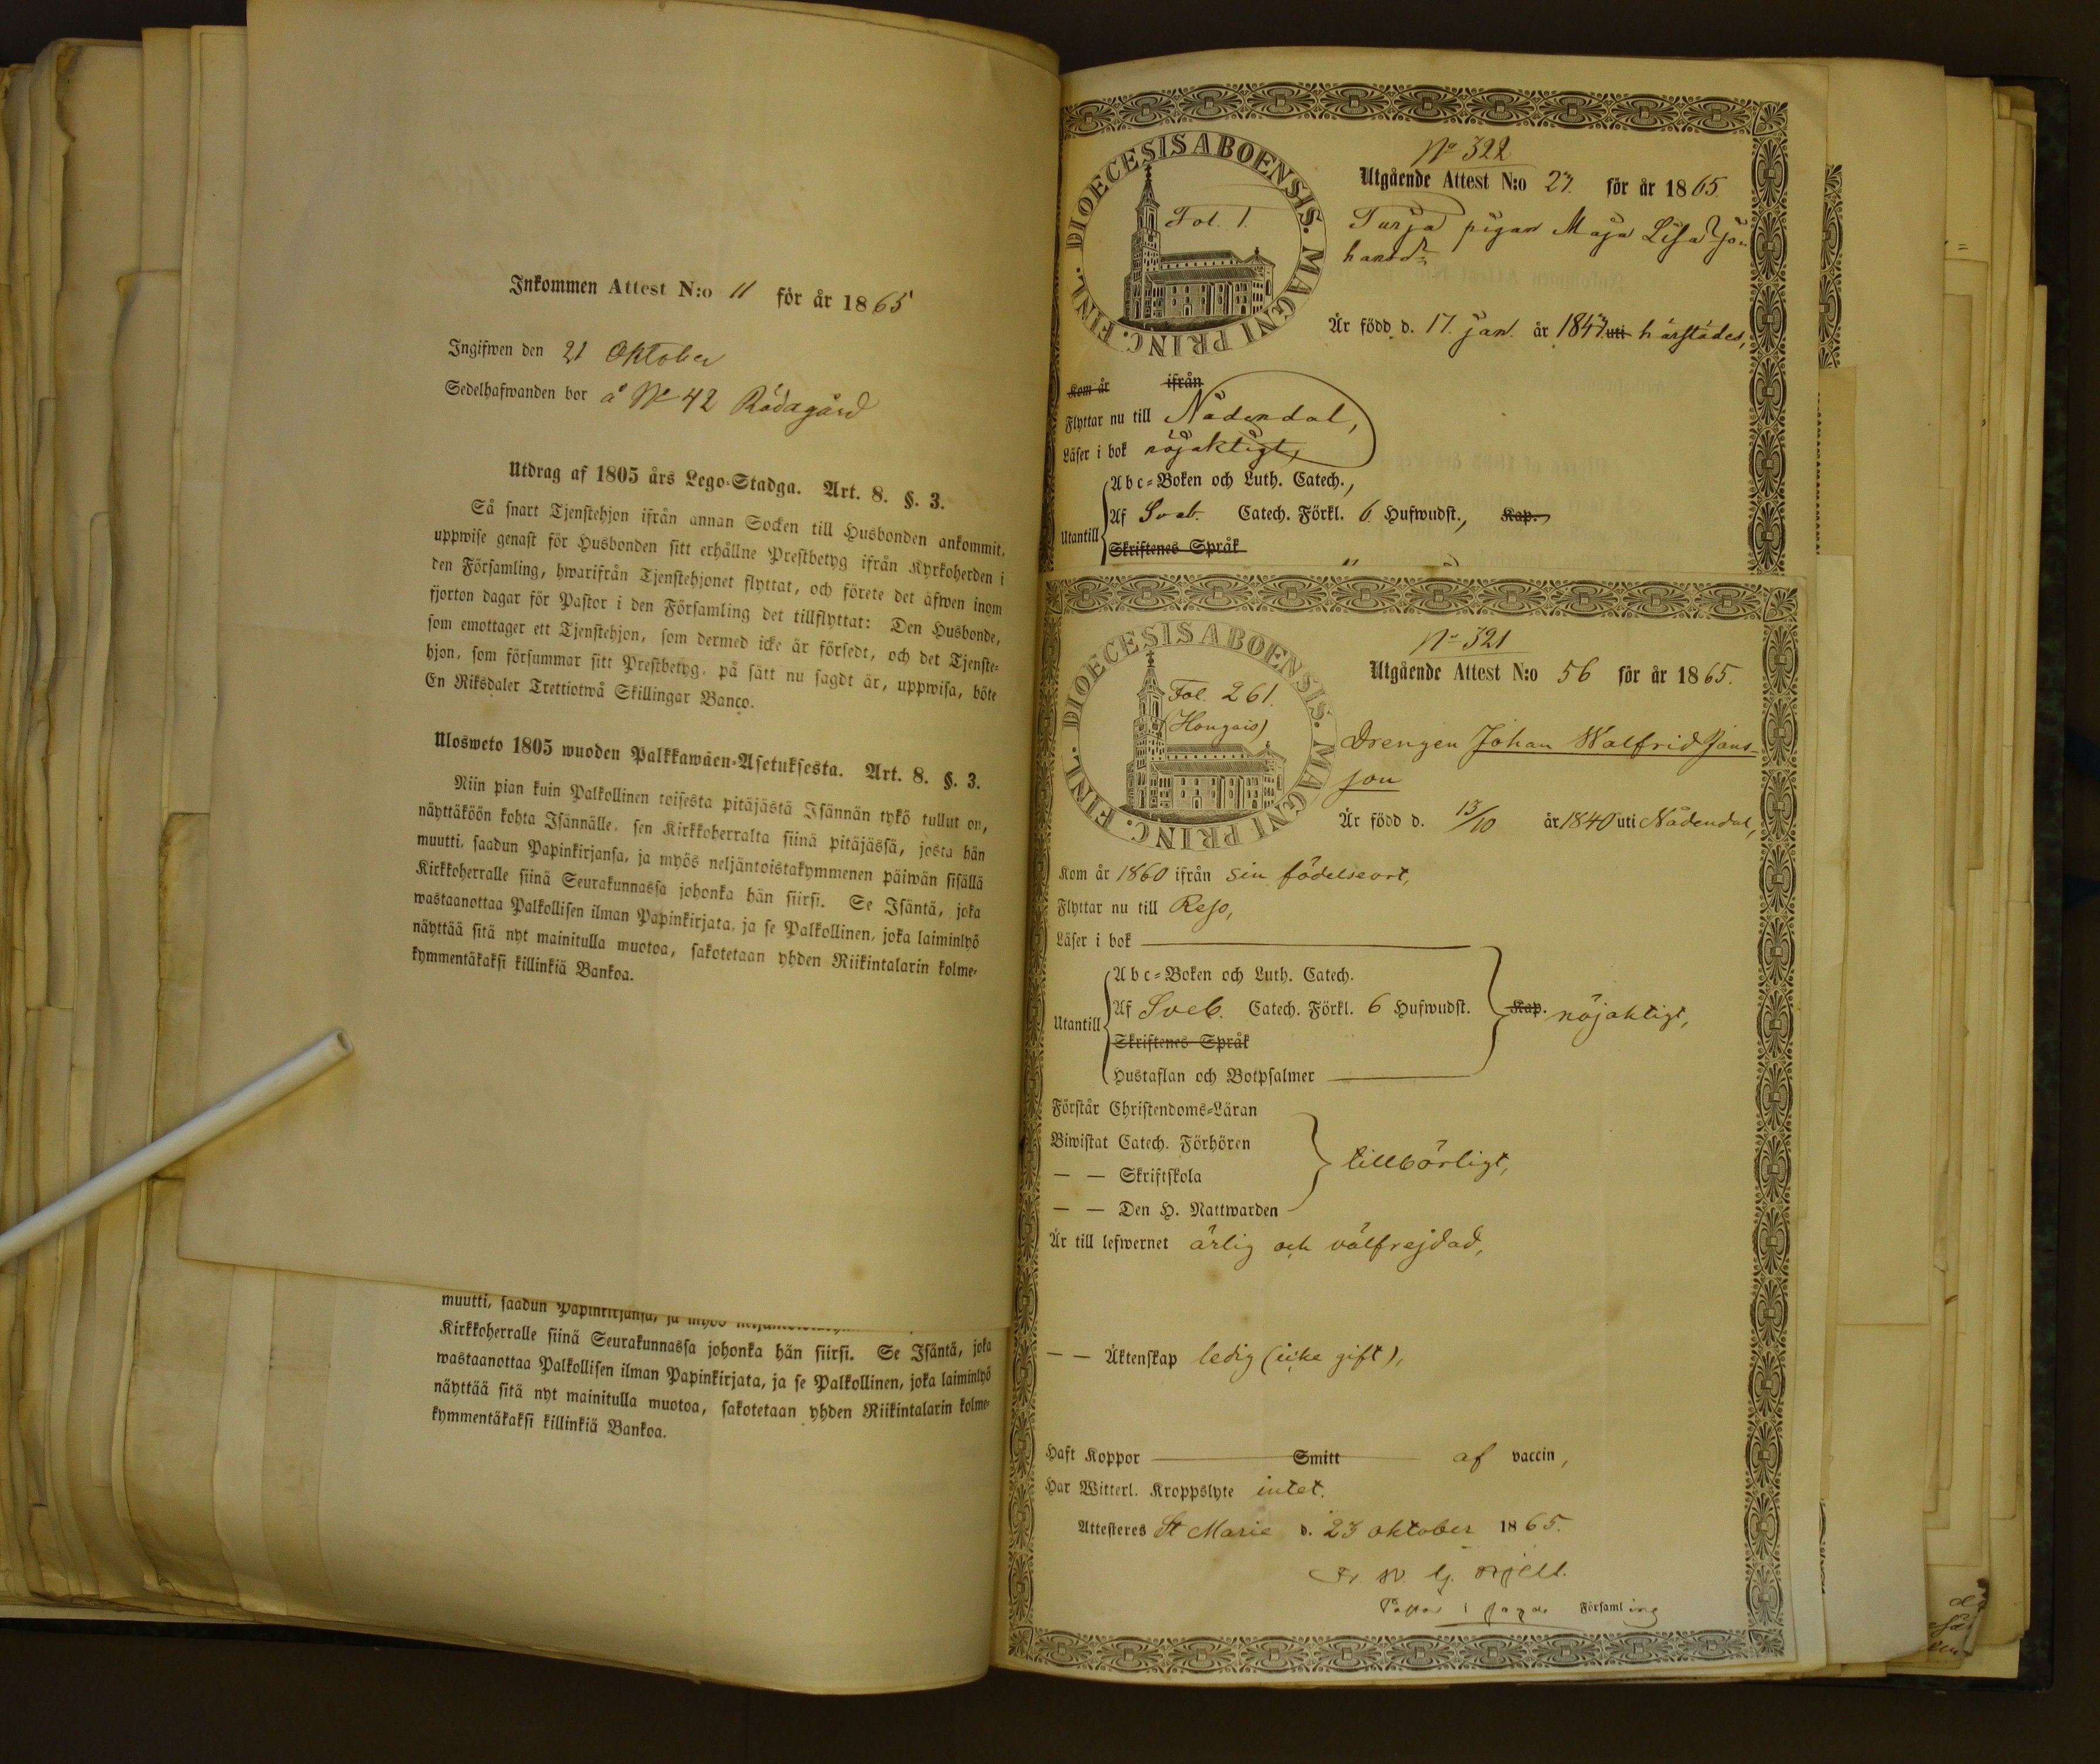 Inkommen Attest N:o 11 för år 1865
Ingifwen den 21 Oktober
Sedelhafwanden bor å No 42 Rödagård
Utdrag af 1805 års Lego-Stadga. Art. 8. §. 3.
Så snart Tjenstehjon ifrån annan Socken till Husbonden ankommit,
uppwise genast för Husbonden sitt erhållne Prestbetyg ifrån Kyrkoherden i
den Församling, hwarifrån Tjenstehjonet flyttat, och förete det äfwen inom
fjorton dagar för Pastor i den Församling det tillflyttat: Den Husbonde,
som emottager ett Tjenstehjon, som dermed icke är försedt, och det Tjenste-
hjon, som försummar sitt Prestbetyg, på sätt nu sagdt är, uppwisa, böte
En Riksdaler Trettiotwå Skillingar Banco.
Ulosweto 1805 wuoden Palkkawäen-Asetuksesta. Art. 8. §. 3.
Niin pian kuin Palkollinen toisesta pitäjästä Isännän tykö tullut on,
näyttäköön kohta Isännälle, sen Kirkkoherralta siinä pitäjässä, josta hän
muutti, saadun Papinkirjansa, ja myös neljäntoistakymmenen päiwän sisällä
Kirkkoherralle siinä Seurakunnassa johonka hän siirsi. Se Isäntä, joka
wastaanottaa Palkollisen ilman Papinkirjata, ja se Palkollinen, joka laiminlyö
näyttää sitä nyt mainitulla muotoa, sakotetaan yhden Riikintalarin kolme-
kymmentäkaksi killinkiä Bankoa.
muutti, saadun Papinkirjansa, ja myös
Kirkkoherralle siinä Seurakunnassa johonka hän siirsi. Se Isäntä, joka
wastaanottaa Palkollisen ilman Papinkirjata, ja se Palkollinen, joka laiminlyö
näyttää sitä nyt mainitulla muotoa, sakotetaan yhden Riikintalarin kolme-
kymmentäkaksi killinkiä Bankoa.
DIOECESIS ABOENSIS. MAGNI PRINC. FINL.
Fol. 1.
No 322
Utgående Attest N:o 27. för år 1865.
pigan Maja Lisa Jo-
hansdr
Är född d. 17. jan. år 1847 uti härstädes,
Kom år ifrån
Flyttar nu till Nådendal,
Läser i bok nöjaktigt,
Abc-Boken och Luth. Catech.,
Utantill
Af Sveb. Catech. Förkl. 6 Hufwudst., Kap.
Skriftenes Språk
DIOECESIS ABOENSIS. MAGNI PRINC. FINL.
Fol. 261.
(Hongais)
No 321
Utgående Attest N:o 56 för år 1865.
Drengen Johan Walfrid Jans-
son
Är född d. 13/10 år 1840 uti Nådendal,
Kom år 1860 ifrån sin födelseort,
Flyttar nu till Reso,
Läser i bok
Abc-Boken och Luth. Catech.
Utantill
Af Sveb. Catech. Förkl. 6 Hufwudst. Kap. nöjaktigt,
Skriftenes Språk
Hustaflan och Botpsalmer
Förstår Christendoms-Läran
Biwistat Catech. Förhören
— — Skriftskola
tillbörligt,
— — Den H. Nattwarden
Är till lefwernet ärlig och välfrejdad,
— — Äktenskap ledig (icke gift),
Haft Koppor Smitt af vaccin,
Har Witterl. Kroppslyte intet.
Attesteres St Marie d. 23 oktober 1865.
Församling